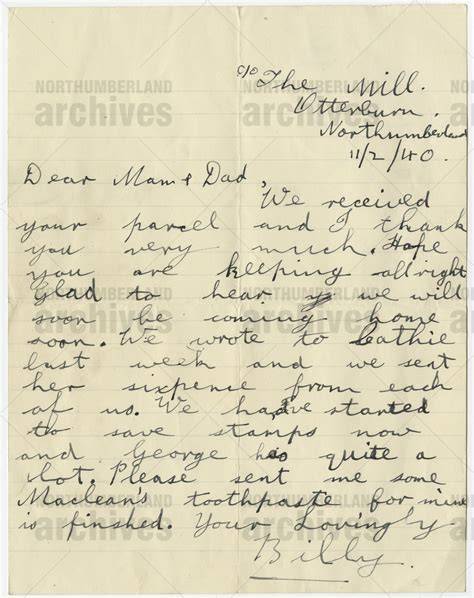 c/o The Mill.
Otterburn.
Northumberland
11/2/40.
Dear Mam & Dad,
We received
your parcel and I thank
you very much. Hope
you are keeping allright
Glad to hear we will
soon be coming home
soon. We wrote to Cathie
last week and we sent
her sixpence from each
of us. We have started
to save stamps now
and George has quite a
lot. Please sent me some
Maclean's toothpaste for mine
is finished. Your Lovingly
Billy.
NORTHUMBERLAND
archives